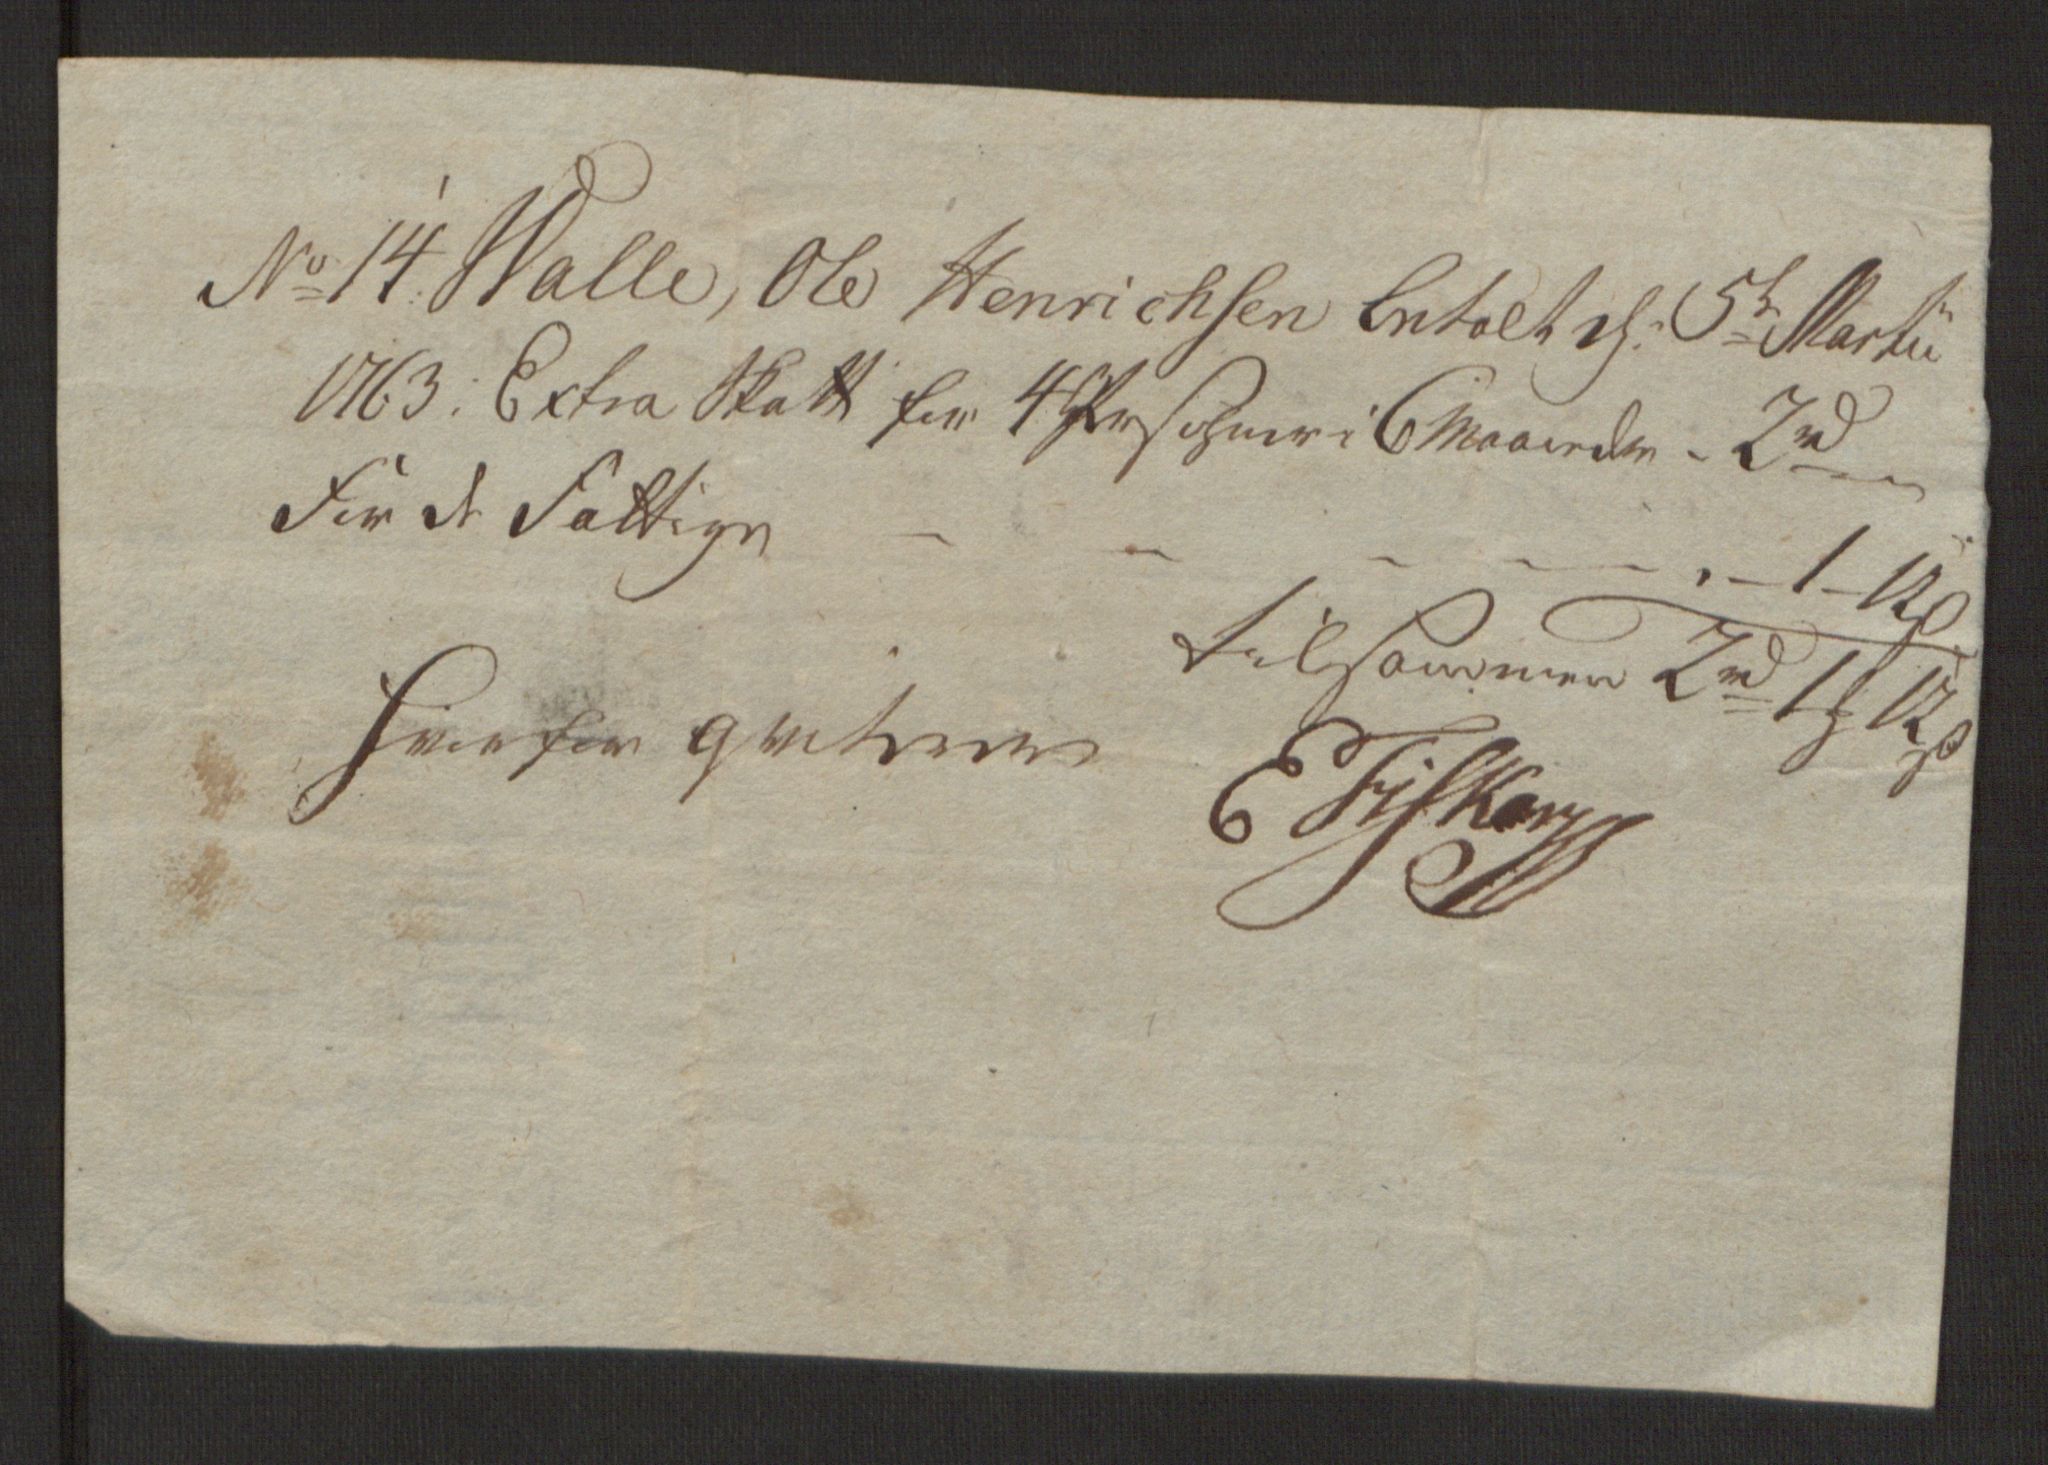 No 14. Walle, Ole Henrichsen betalt d. 5te Martii
1763: Extra Skatt for 4 Persohner i 6 Maaneder - 2 rd
For de Fattige - - - - - - 1 - 12 s
tilsammen 2 rd 1 12 s
Hvorfor qviterer
E